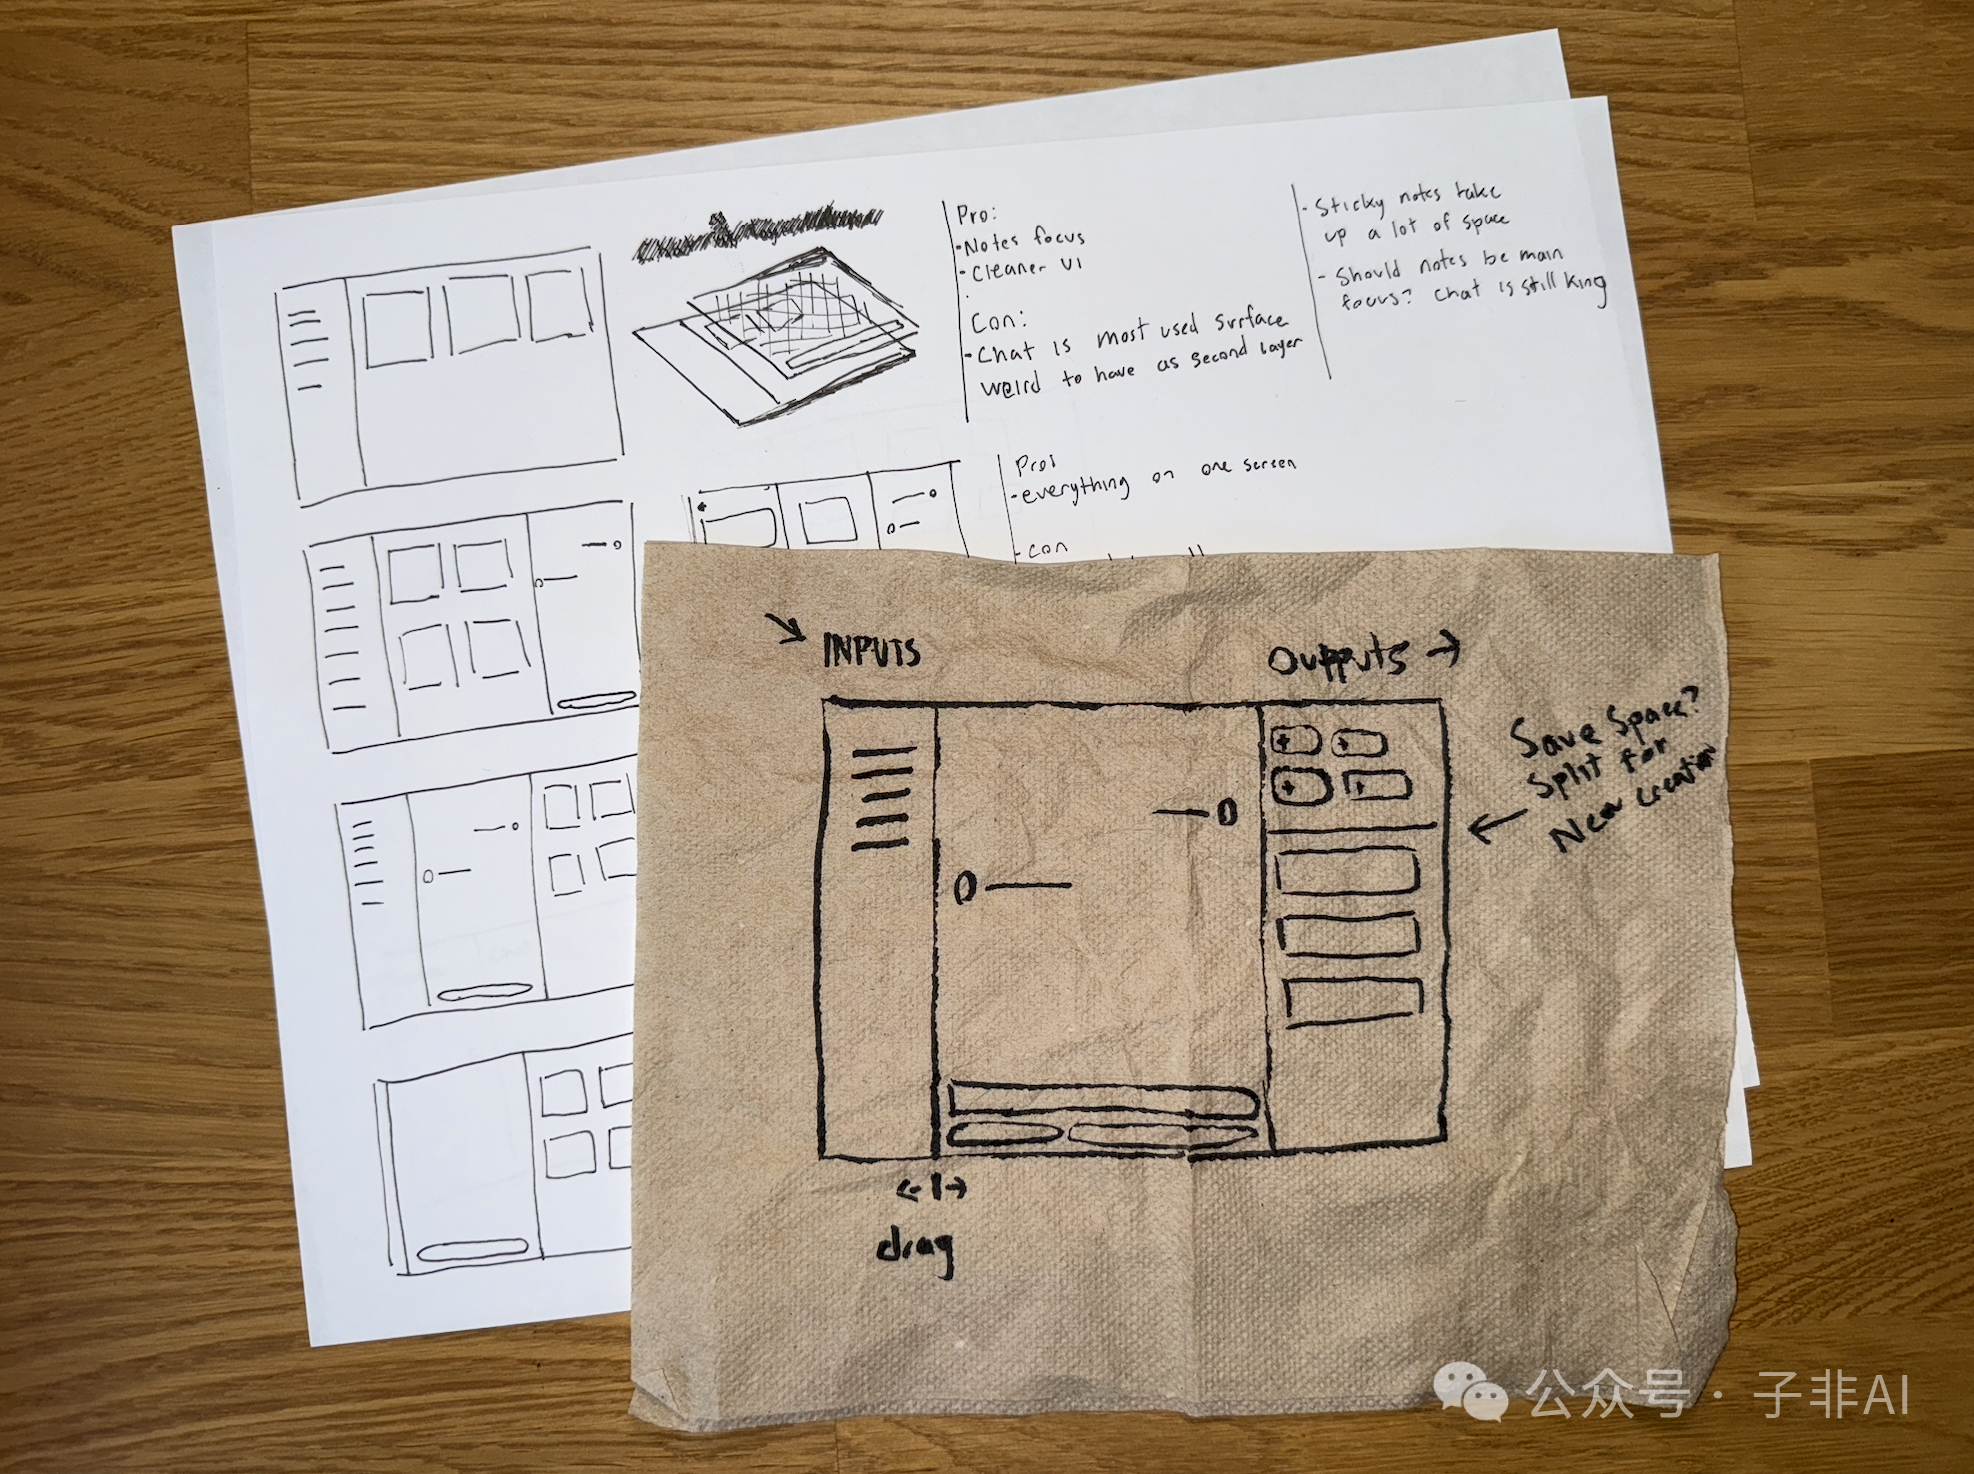 Pro:
- Notes focus
- Cleaner UI
Con:
- Chat is most used surface
weird to have as second layer
- Sticky notes take
up a lot of space
- Should notes be main
focus? Chat is still king
Pros
- everything on one screen
- con
INPUTS
Outputs
Save Space?
Split for
New creation
drag
公众号 · 子非AI